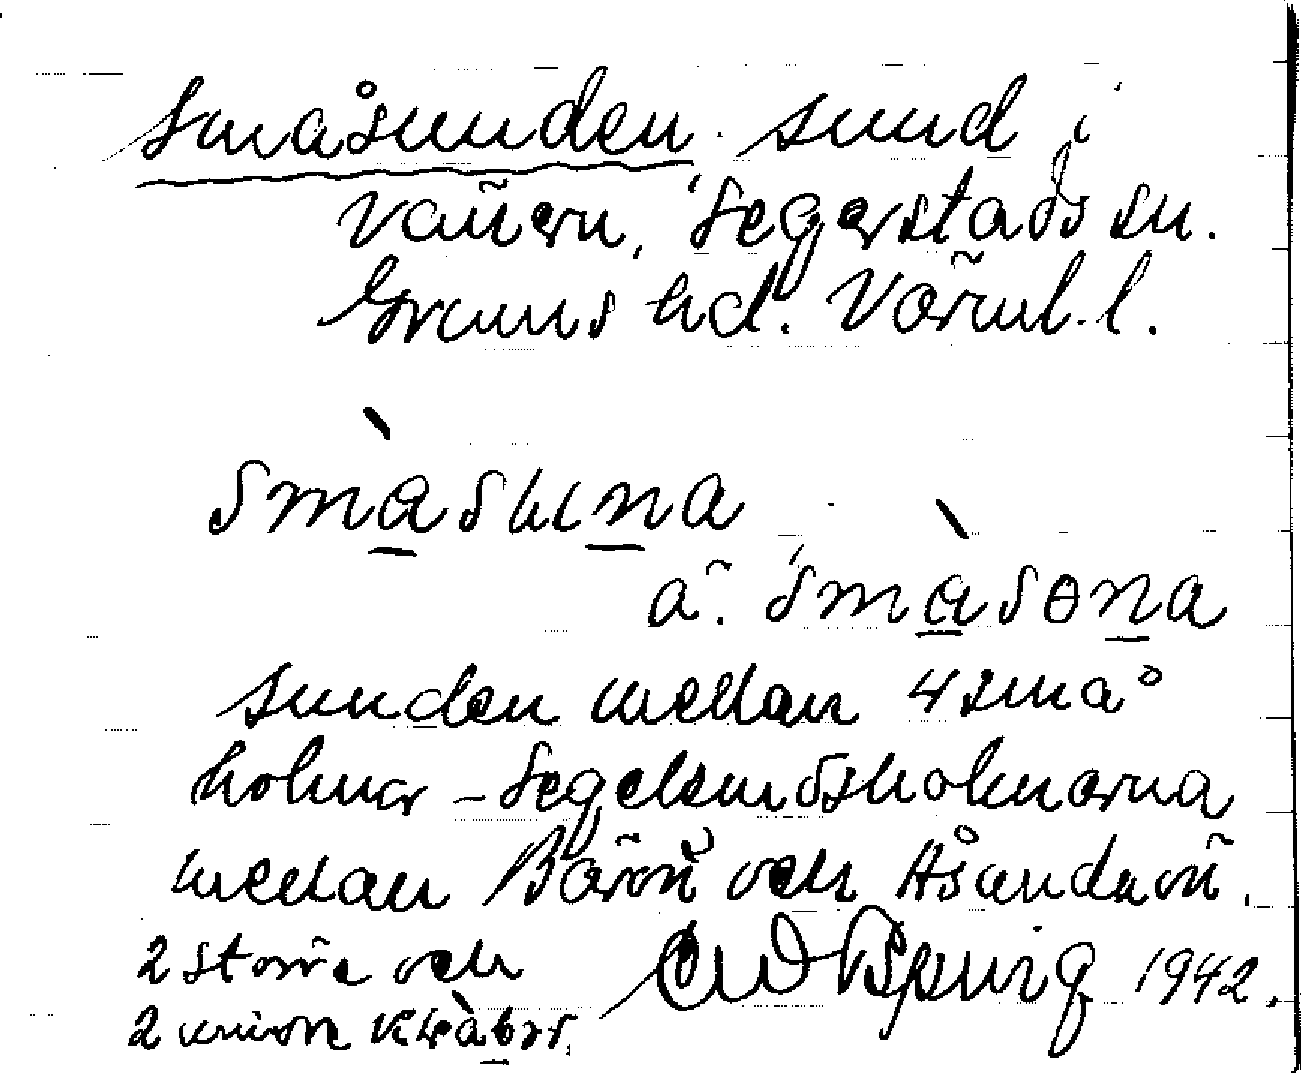 Småsunden. sund i
Vänern, Segerstads sn.
Grums hd. Värml. l.
småsuna
ä. småsɵna
sunden mellan 4 små
holmar – Segelsundsholmarna
mellan Bärön och Åsundaön.
2 större och
2 mindre
1942.